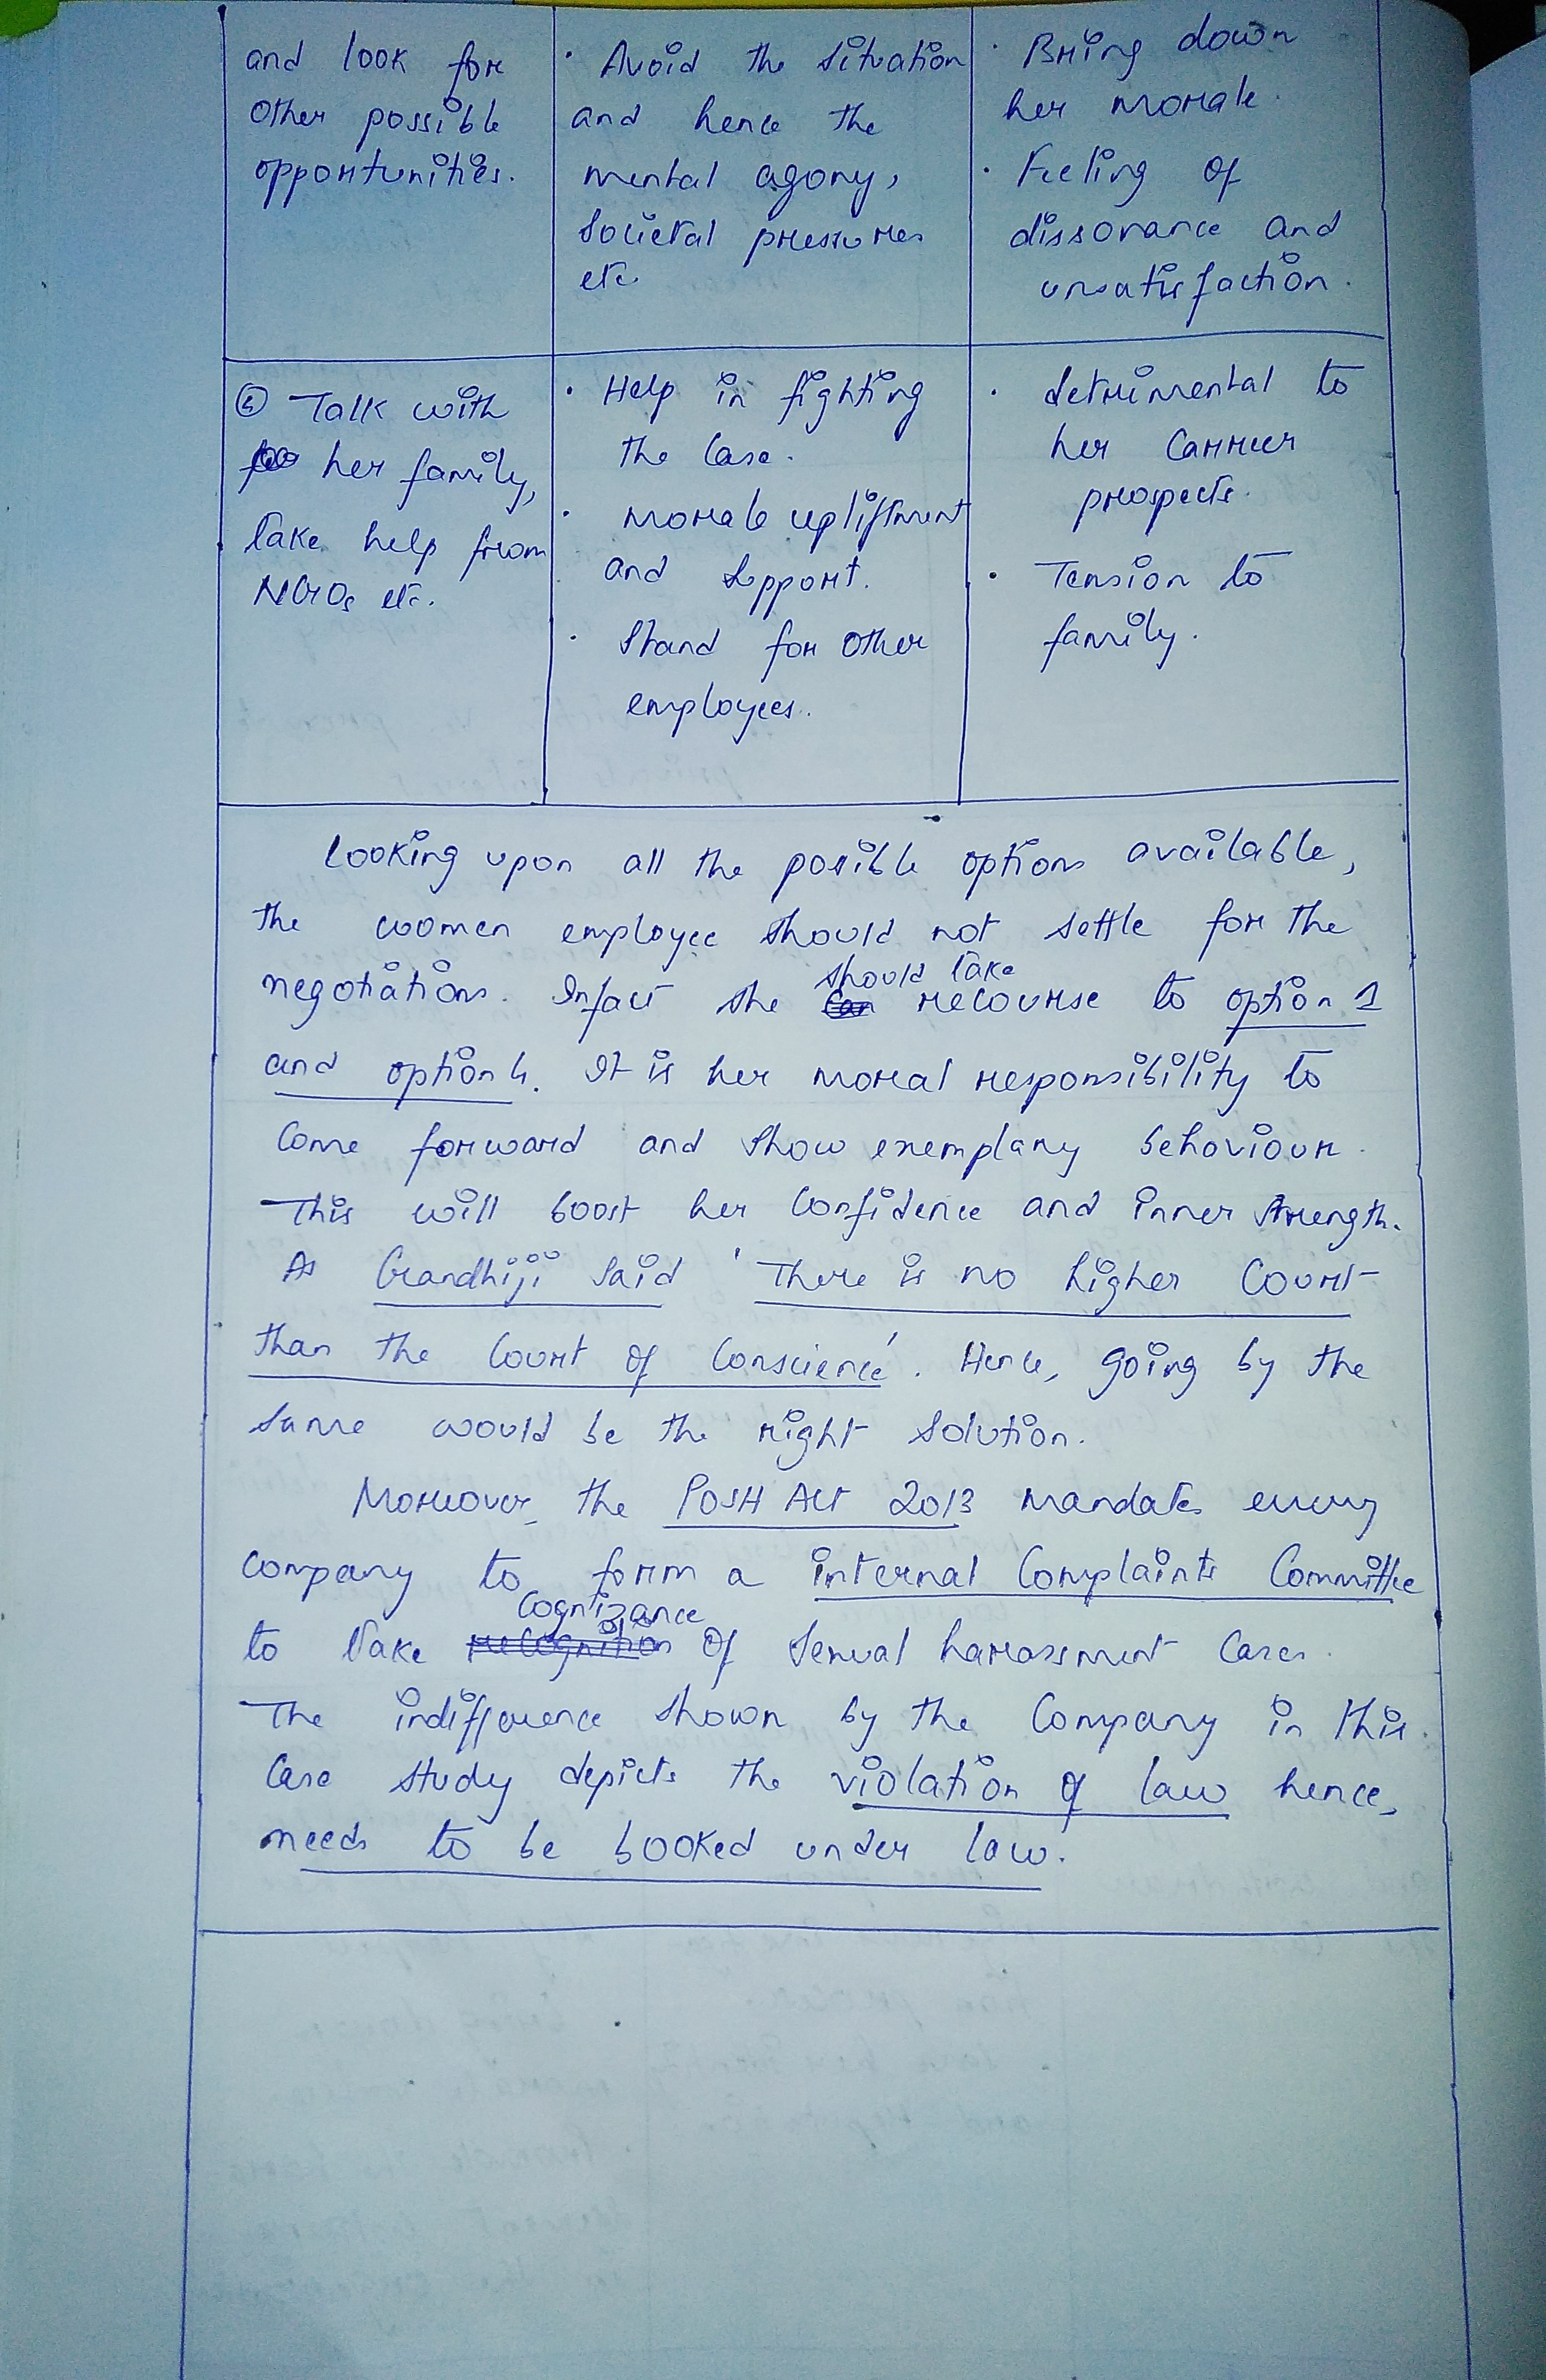 and look for
other possible
opportunities.
· Avoid the situation
and hence the
mental agony,
societal pressures
etc.
· Bring down
her morale.
· Feeling of
dissonance and
unsatisfaction.
④ Talk with
her family,
take help from
NGOs etc.
· Help in fighting
the case.
· morale upliftment
and support.
· Stand for other
employees.
· detrimental to
her carrier
prospects.
· Tension to
family.
Looking upon all the possible options available,
the women employee should not settle for the
negotiations. Infact she should take recourse to option 1
and option 4. It is her moral responsibility to
come forward and show exemplary behaviour.
This will boost her confidence and inner strength.
As Gandhiji said 'There is no higher court
than the court of conscience'. Hence, going by the
same would be the right solution.
Moreover, the POSH Act 2013 mandates every
company to form a internal Complaints Committee
to take cognizance of sexual harassment cases.
The indifference shown by the company in this
case study depicts the violation of law hence,
needs to be booked under law.